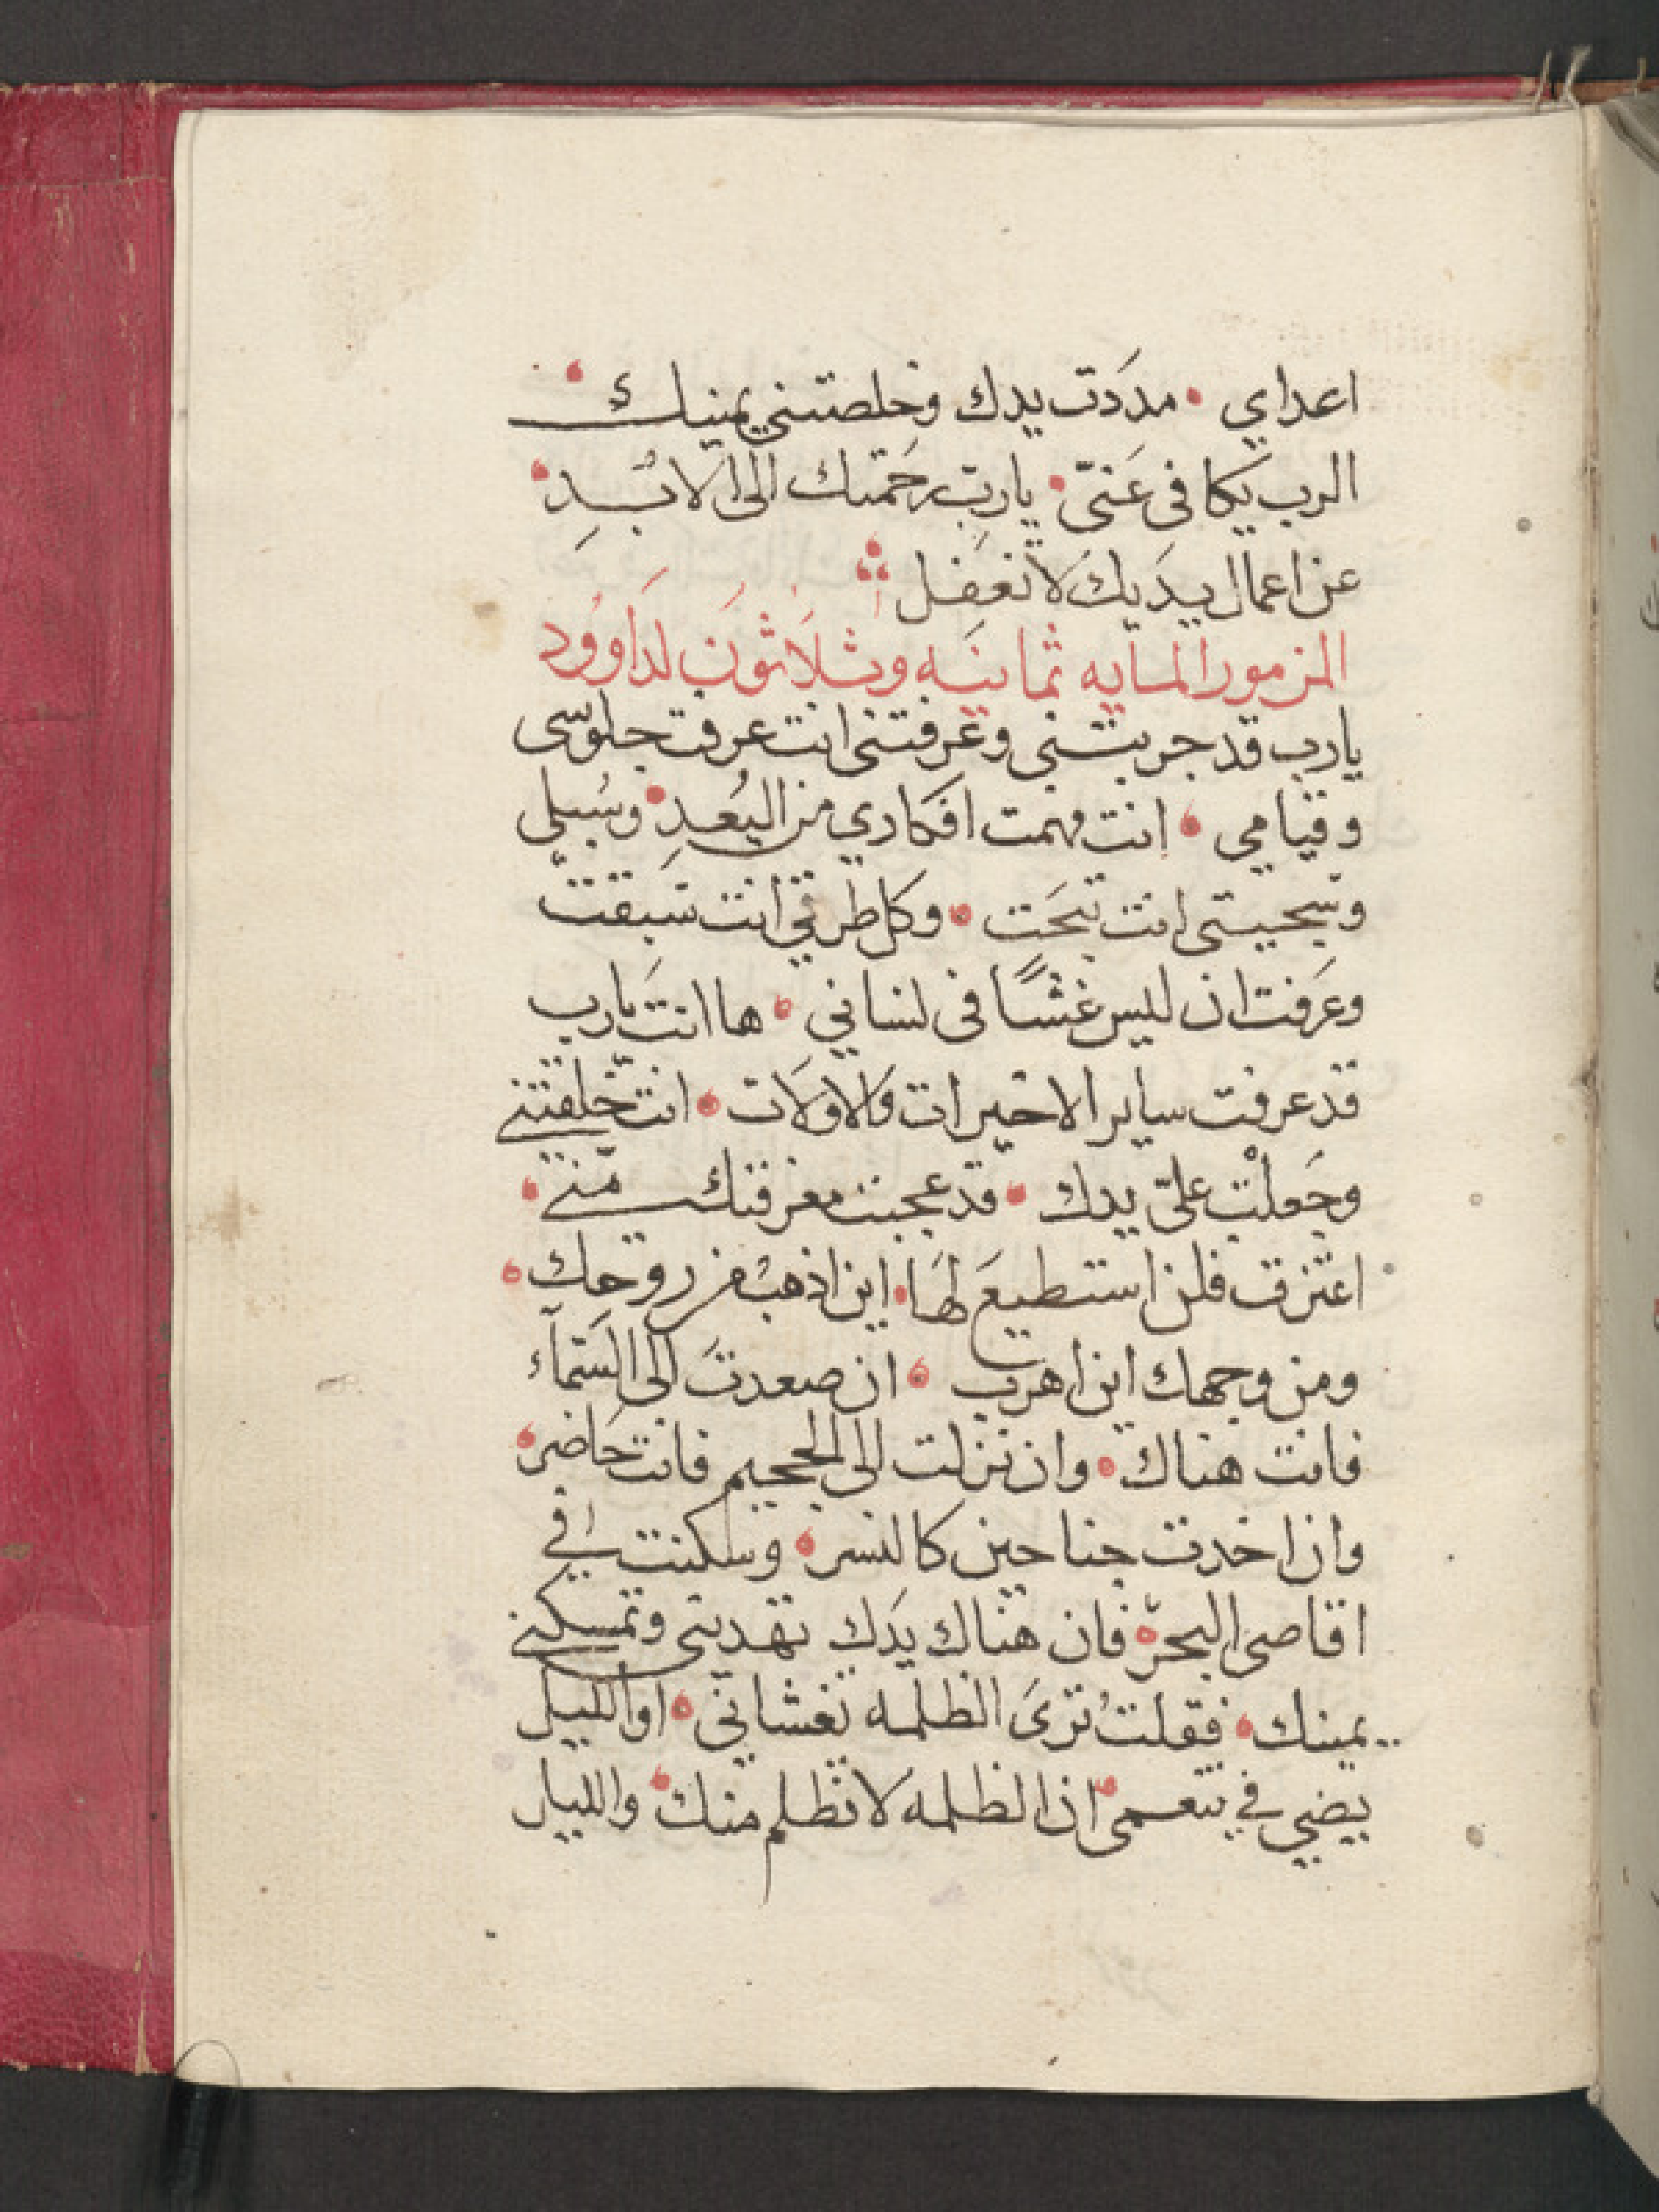 اعداي • مددَت يدك وخلصتني يمينك
الرب يَكافى عَنىّ • ياربّ رحَمتك الى الابَدِ
عن اعمال يدَيك لا تغفل
المزمور المايه ثمانيَه وثلاثوَن لدَاووُد
يارب قد جربتنى وعرفتنى انت عرفت جلوسى
وقيامي • انت فهمت افكاري من البُعدِ • وسُبلي
وسجيتى انت بَحَثت • وكل طرقي انت سَبقت
وعَرفت ان ليس غشًا فى لساني • ها انتَ يارب
قد عرفت ساير الاخيرات والاوَلات • انت خلقتنى
وجَعلْت علىّ يدك • قد عجبت معرفتك منى •
اعتزت فلن استطيعَ لهَا • اين اذهبُ من روحك •
ومن وجهك اين اهرب • ان صعدتَ الى السَمآء
فانت هناك • وان نزلت الى الجحيم فانت حَاضر •
وان اخدت جناحين كالنسر • وسكنت في
اقاصى البحر • فان هناك يدَك تهدينى وتمسكنى
يمينك • فقلتُ ترىَ الظلمه تغشانى • او الليل
يضي في تنعمى • ان الظلمه لا تظلم منك • والليل